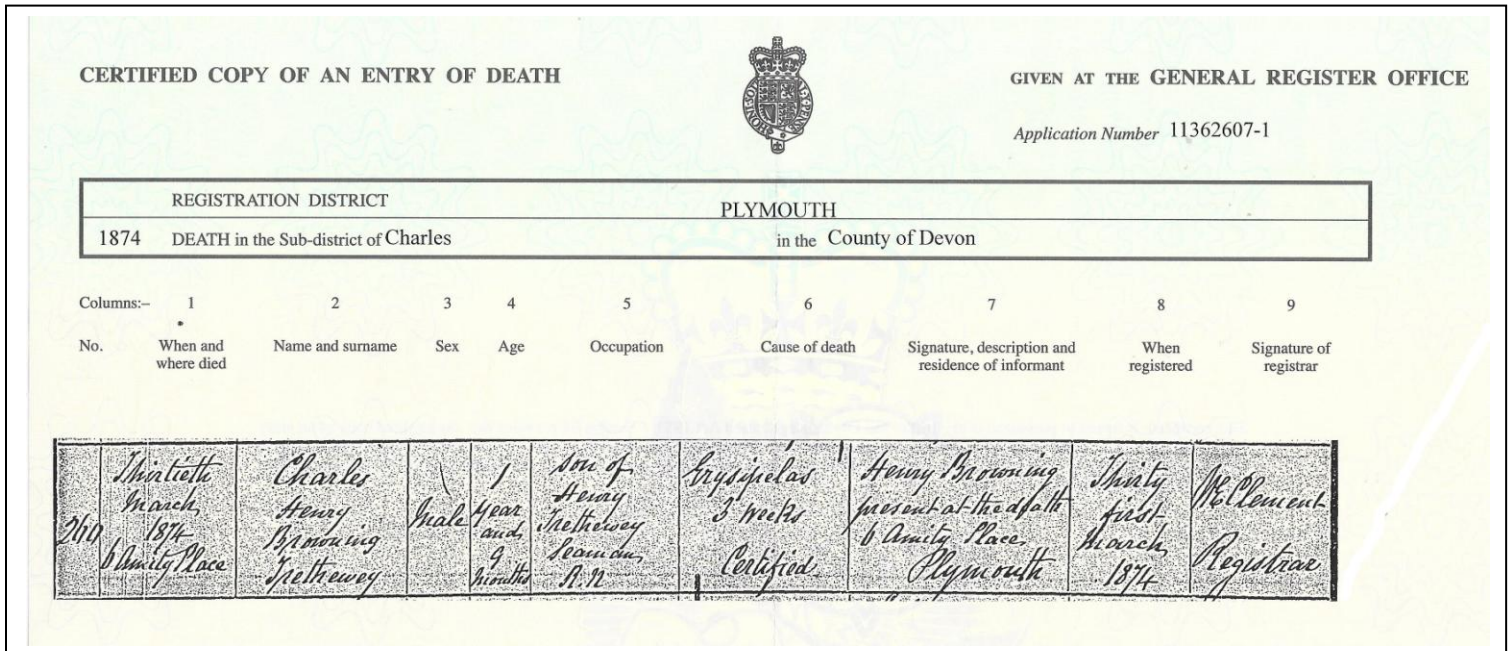 CERTIFIED COPY OF AN ENTRY OF DEATH
GIVEN AT THE GENERAL REGISTER OFFICE
Application Number 11362607-1
REGISTRATION DISTRICT PLYMOUTH
1874 DEATH in the Sub-district of Charles in the County of Devon
Columns:– 1 2 3 4 5 6 7 8 9
No. When and where died Name and surname Sex Age Occupation Cause of death Signature, description and residence of informant When registered Signature of registrar
Thirtieth
March
1874
6 Amity Place
Charles
Henry
Browning
Trethewey
Male
1
year
and
9
months
Son of
Henry
Trethewey
Seaman
R.N
Erysipelas
3 weeks
Certified
Henry Browning
present at the death
6 Amity Place
Plymouth
Thirty
first
March
1874
Clement
Registrar